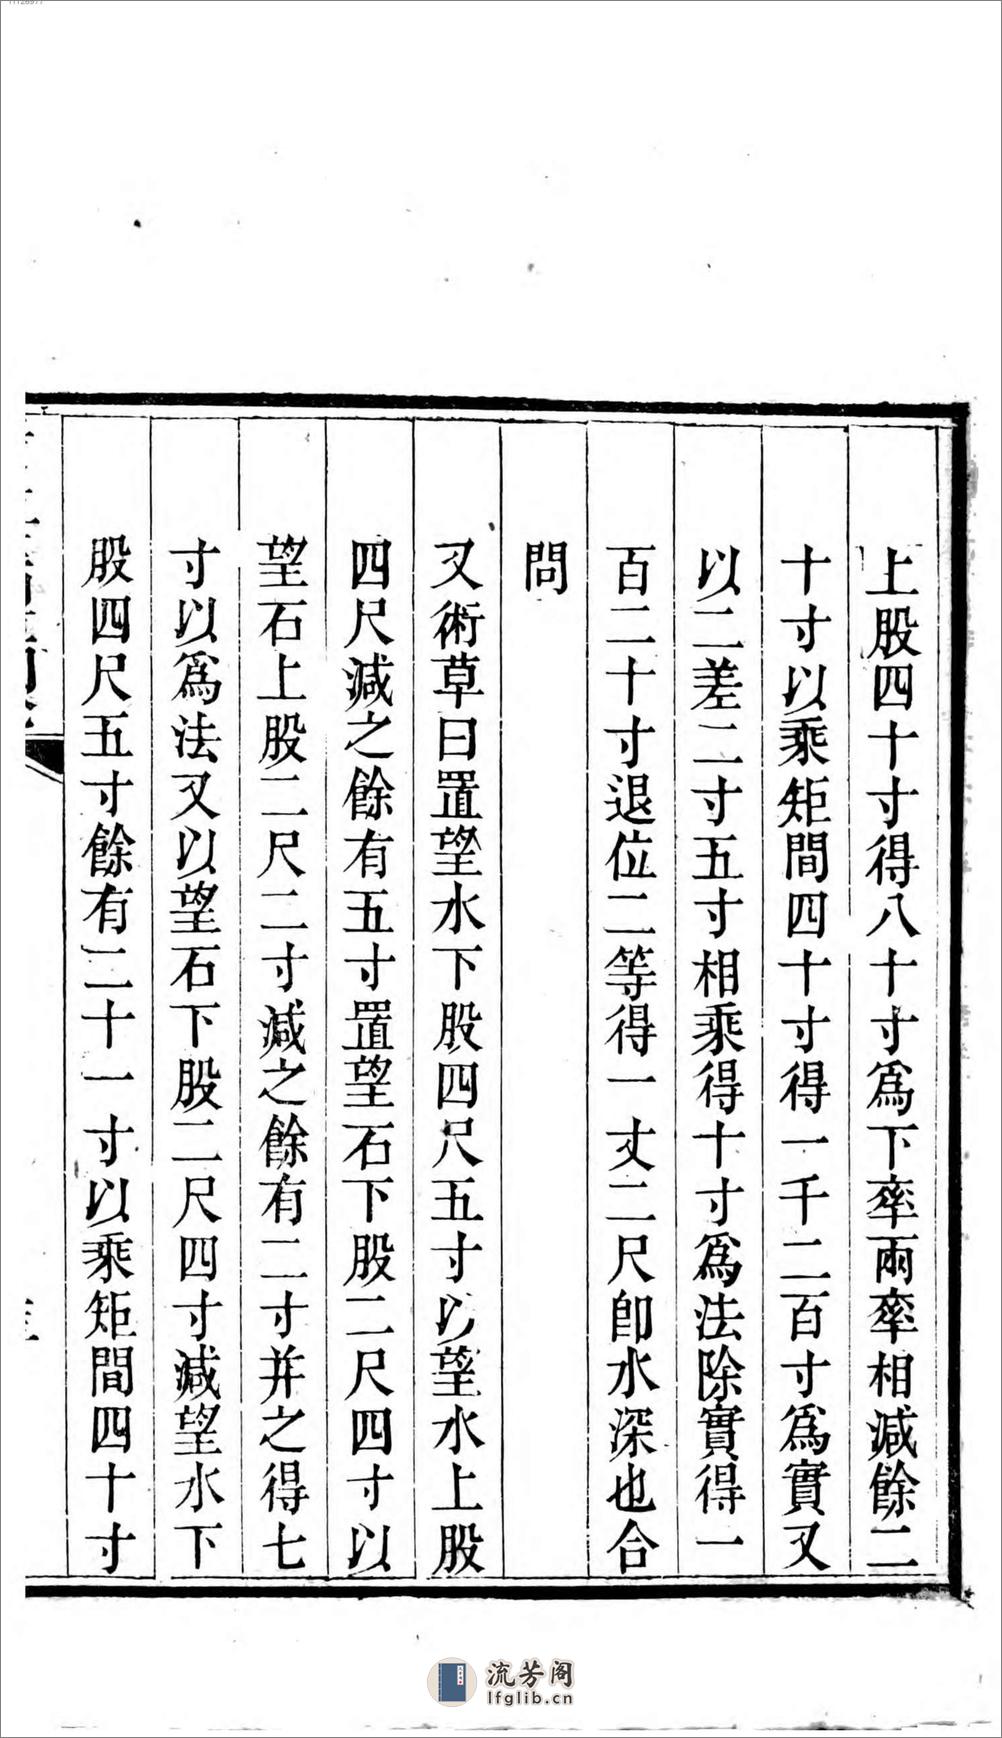 上股四十寸得八十寸爲下率兩率相減餘二
十寸以乘矩間四十寸得一千二百寸爲實又
以二差二寸五寸相乘得十寸爲法除實得一
百二十寸退位二等得一丈二尺卽水深也合
問
又術草曰置望水下股四尺五寸以望水上股
四尺減之餘有五寸置望石下股二尺四寸以
望石上股二尺二寸減之餘有二寸并之得七
寸以爲法又以望石下股二尺四寸減望水下
股四尺五寸餘有二十一寸以乘矩間四十寸
流芳阁
lfglib.cn